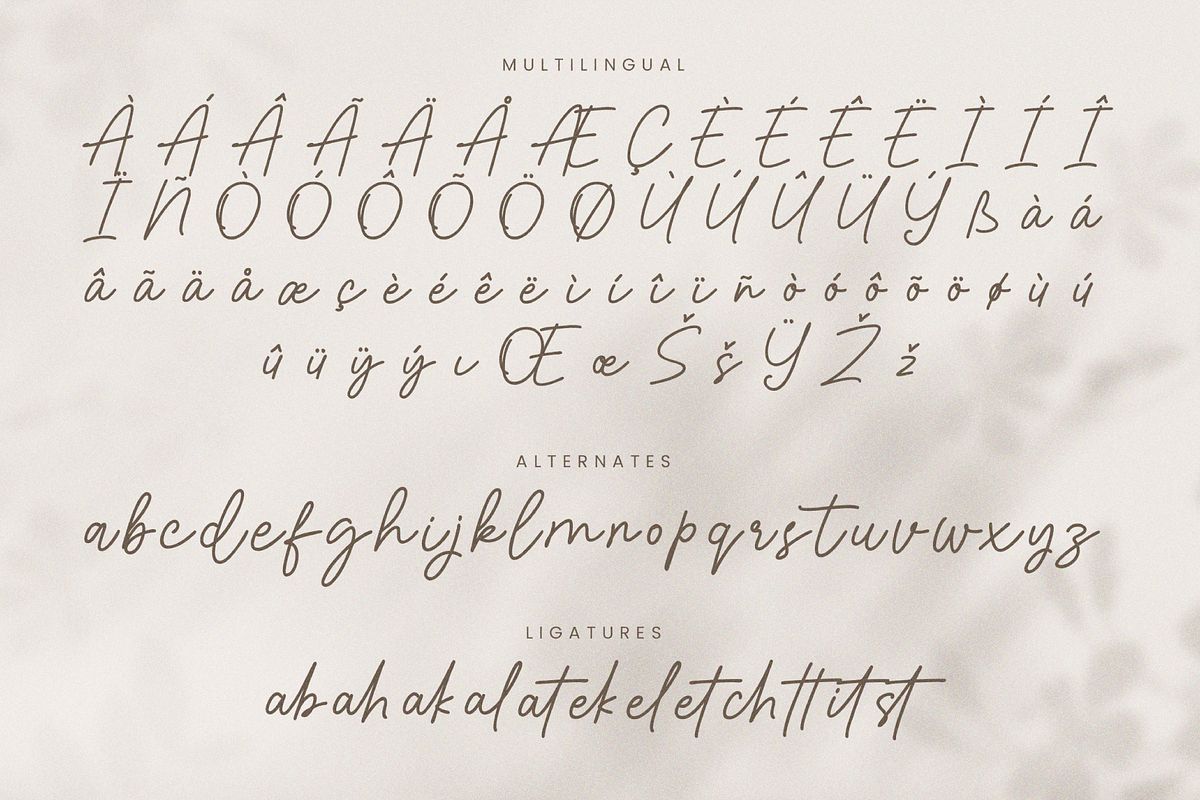 MULTILINGUAL
À Á Â Ã Ä Å Æ Ç È É Ê Ë Ì Í Î
Ï Ñ Ò Ó Ô Õ Ö Ø Ù Ú Û Ü Ý ß à á
â ã ä å æ ç è é ê ë ì í î ï ñ ò ó ô õ ö ø ù ú
û ü ÿ ý ı Œ œ Š š Ÿ Ž ž
ALTERNATES
abcdefghijklmnopqrstuvwxyz
LIGATURES
ab ah ak al at ek el et ch tt it st